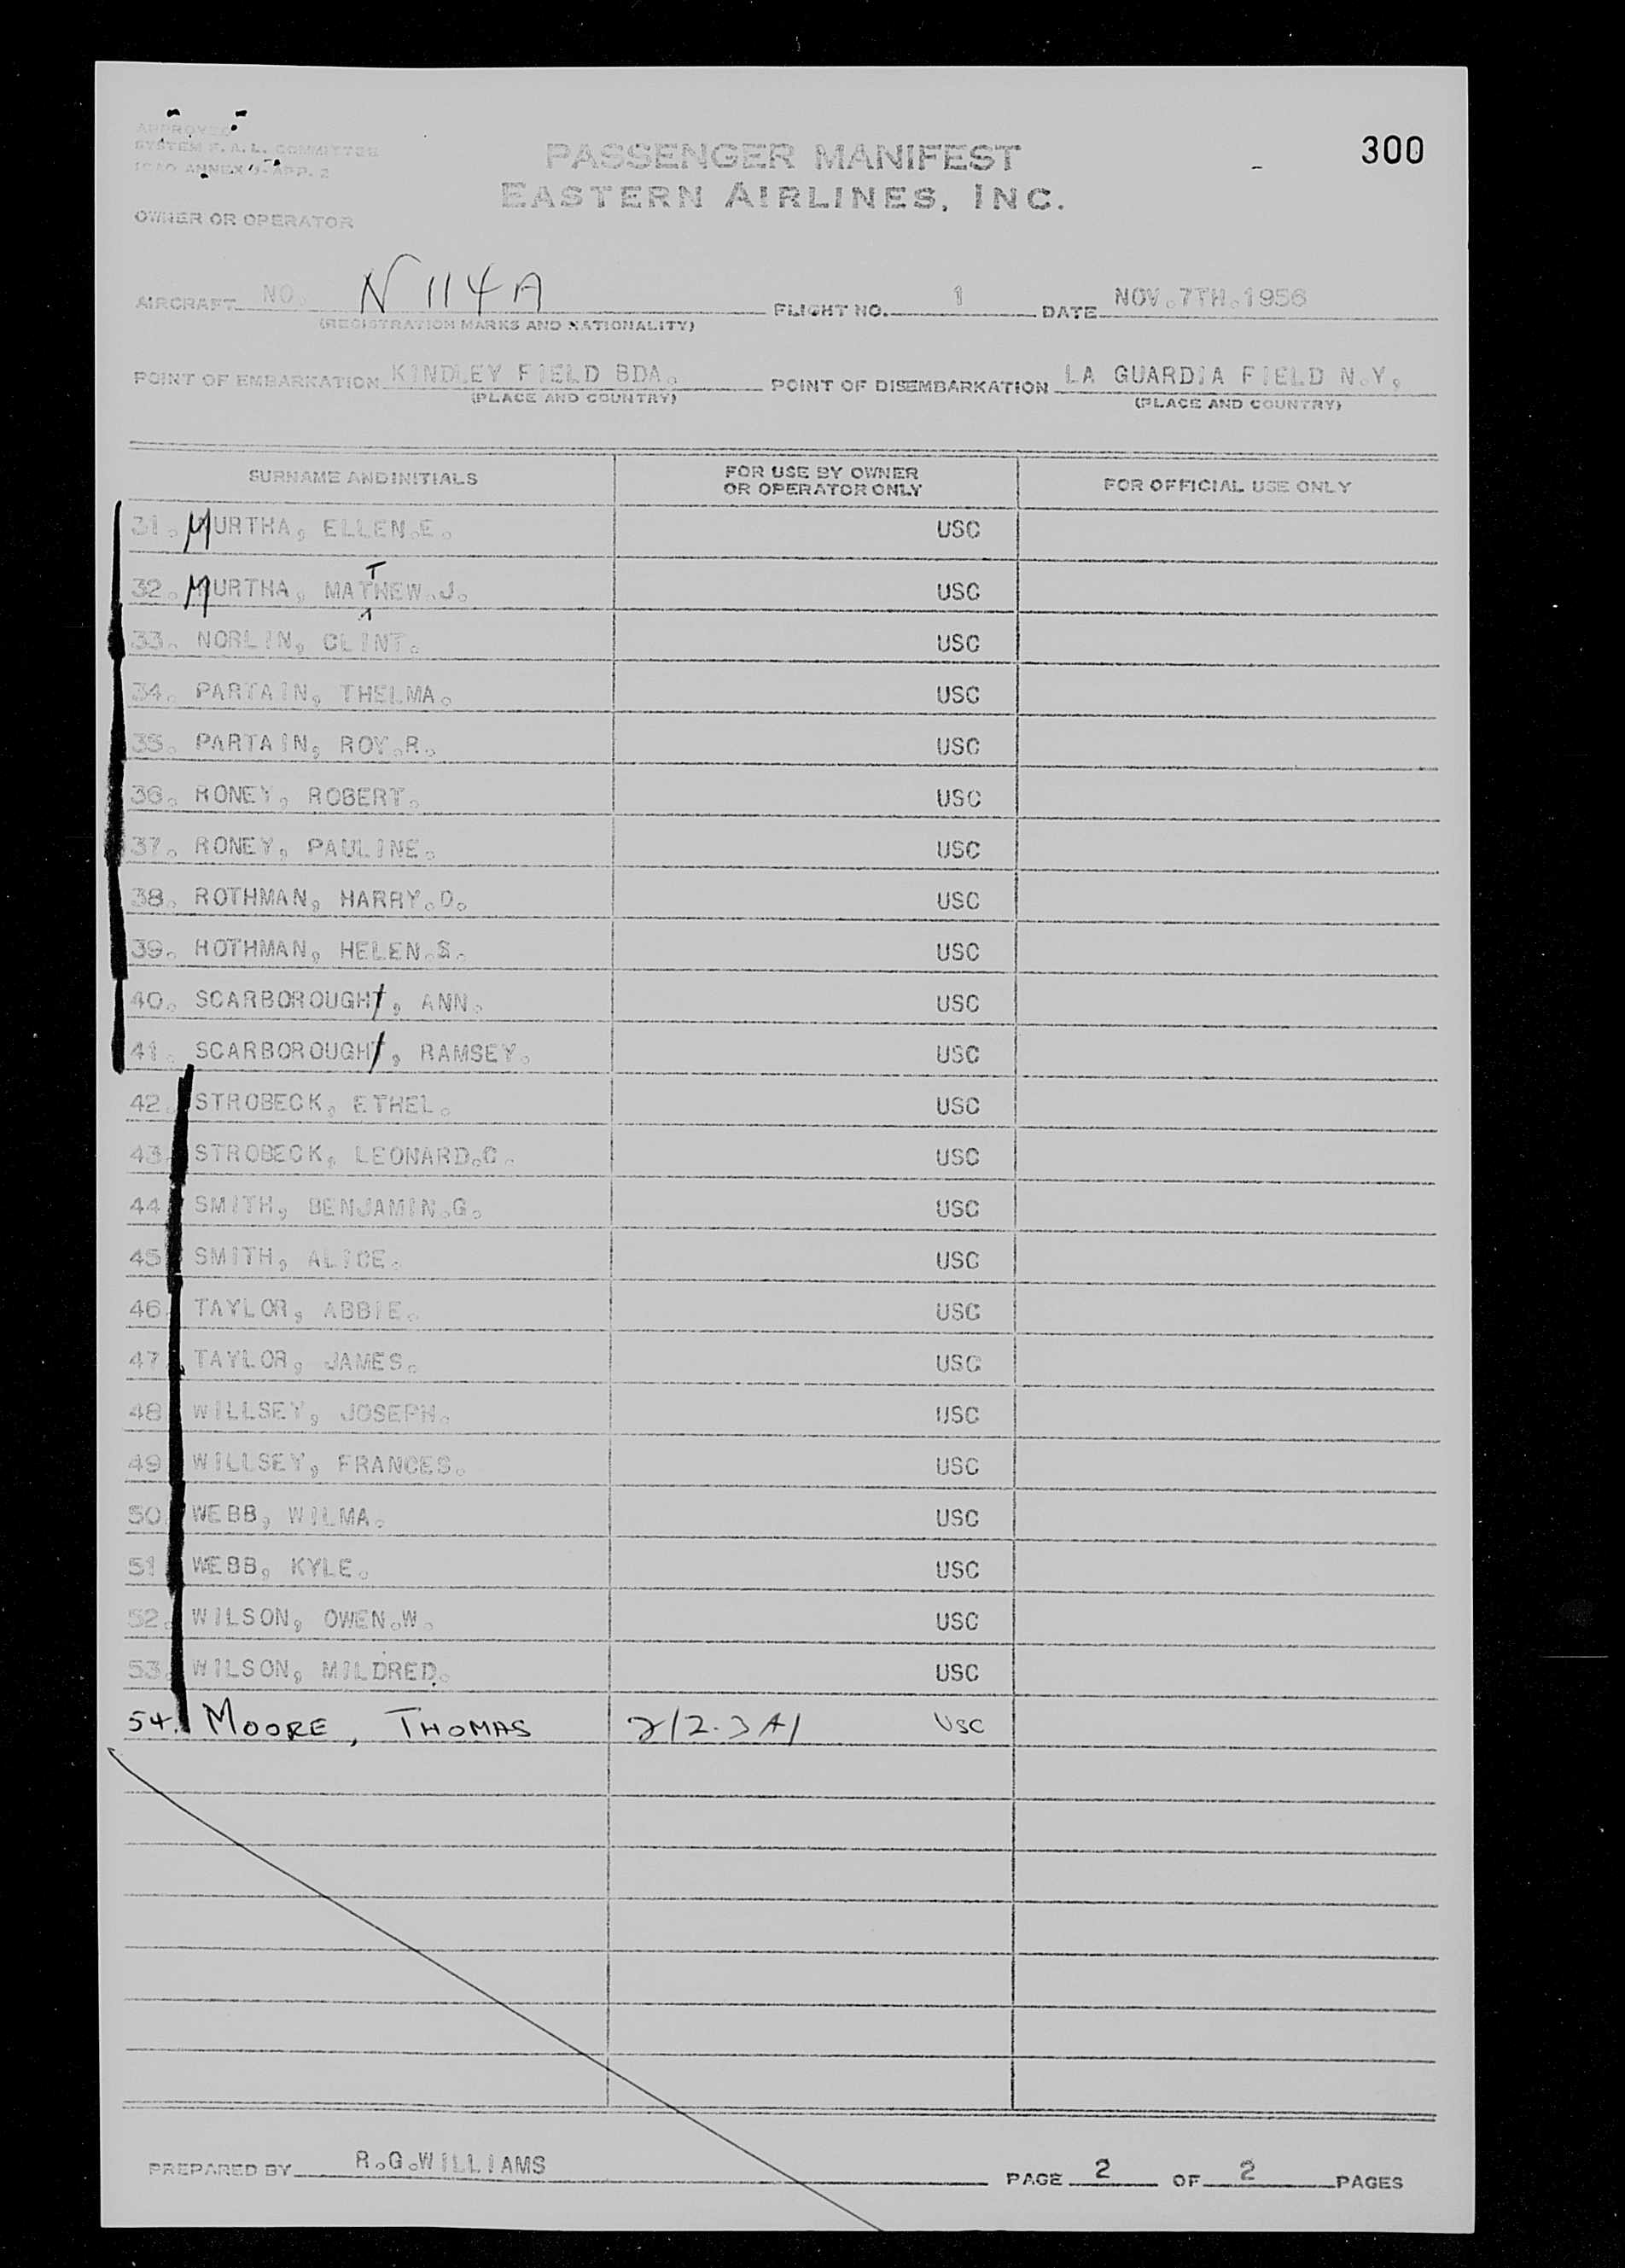 APPROVED
SYSTEM F.A.L. COMMITTEE
ICAO ANNEX 9-APP. 2
300
PASSENGER MANIFEST
EASTERN AIRLINES, INC.
OWNER OR OPERATOR
AIRCRAFT NO. N114A FLIGHT NO. 1 DATE NOV.7TH.1956
(REGISTRATION MARKS AND NATIONALITY)
POINT OF EMBARKATION KINDLEY FIELD BDA. POINT OF DISEMBARKATION LA GUARDIA FIELD N.Y.
(PLACE AND COUNTRY) (PLACE AND COUNTRY)
SURNAME AND INITIALS FOR USE BY OWNER OR OPERATOR ONLY FOR OFFICIAL USE ONLY
31. MURTHA, ELLEN.E. USC
32. MURTHA, MATTHEW.J. USC
33. NORLIN, CLINT. USC
34. PARTAIN, THELMA. USC
35. PARTAIN, ROY.R. USC
36. RONEY, ROBERT. USC
37. RONEY, PAULINE. USC
38. ROTHMAN, HARRY.D. USC
39. ROTHMAN, HELEN.S. USC
40. SCARBOROUGH, ANN. USC
41. SCARBOROUGH, RAMSEY. USC
42. STROBECK, ETHEL. USC
43. STROBECK, LEONARD.C. USC
44. SMITH, BENJAMIN.G. USC
45. SMITH, ALICE. USC
46. TAYLOR, ABBIE. USC
47. TAYLOR, JAMES. USC
48. WILLSEY, JOSEPH. USC
49. WILLSEY, FRANCES. USC
50. WEBB, WILMA. USC
51. WEBB, KYLE. USC
52. WILSON, OWEN.W. USC
53. WILSON, MILDRED. USC
54. MOORE, THOMAS USC
PREPARED BY R.G.WILLIAMS PAGE 2 OF 2 PAGES